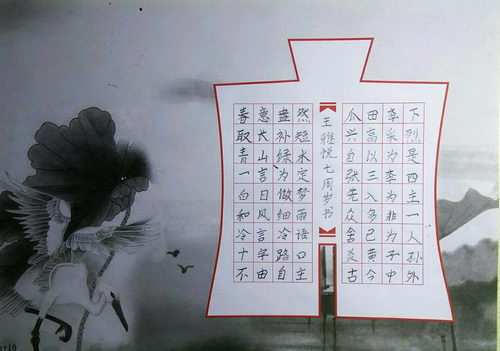 春意盎然
取长补短
青山绿水
一言为定
白日做梦
和风细雨
冷言冷语
十字路口
不由自主
王雅悦七周岁书
瓜田李下
兴高采烈
自以为是
张三李四
先入为主
众多非一
舍己为人
炎黄子孙
古今中外